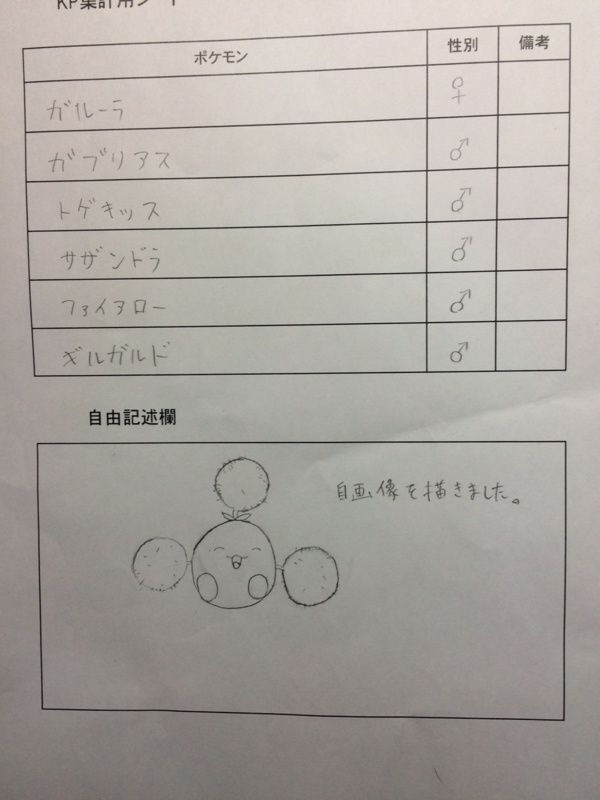 KP集計用シート
ポケモン 性別 備考
ガルーラ ♀
ガブリアス ♂
トゲキッス ♂
サザンドラ ♂
ファイアロー ♂
ギルガルド ♂
自由記述欄
自画像を描きました。